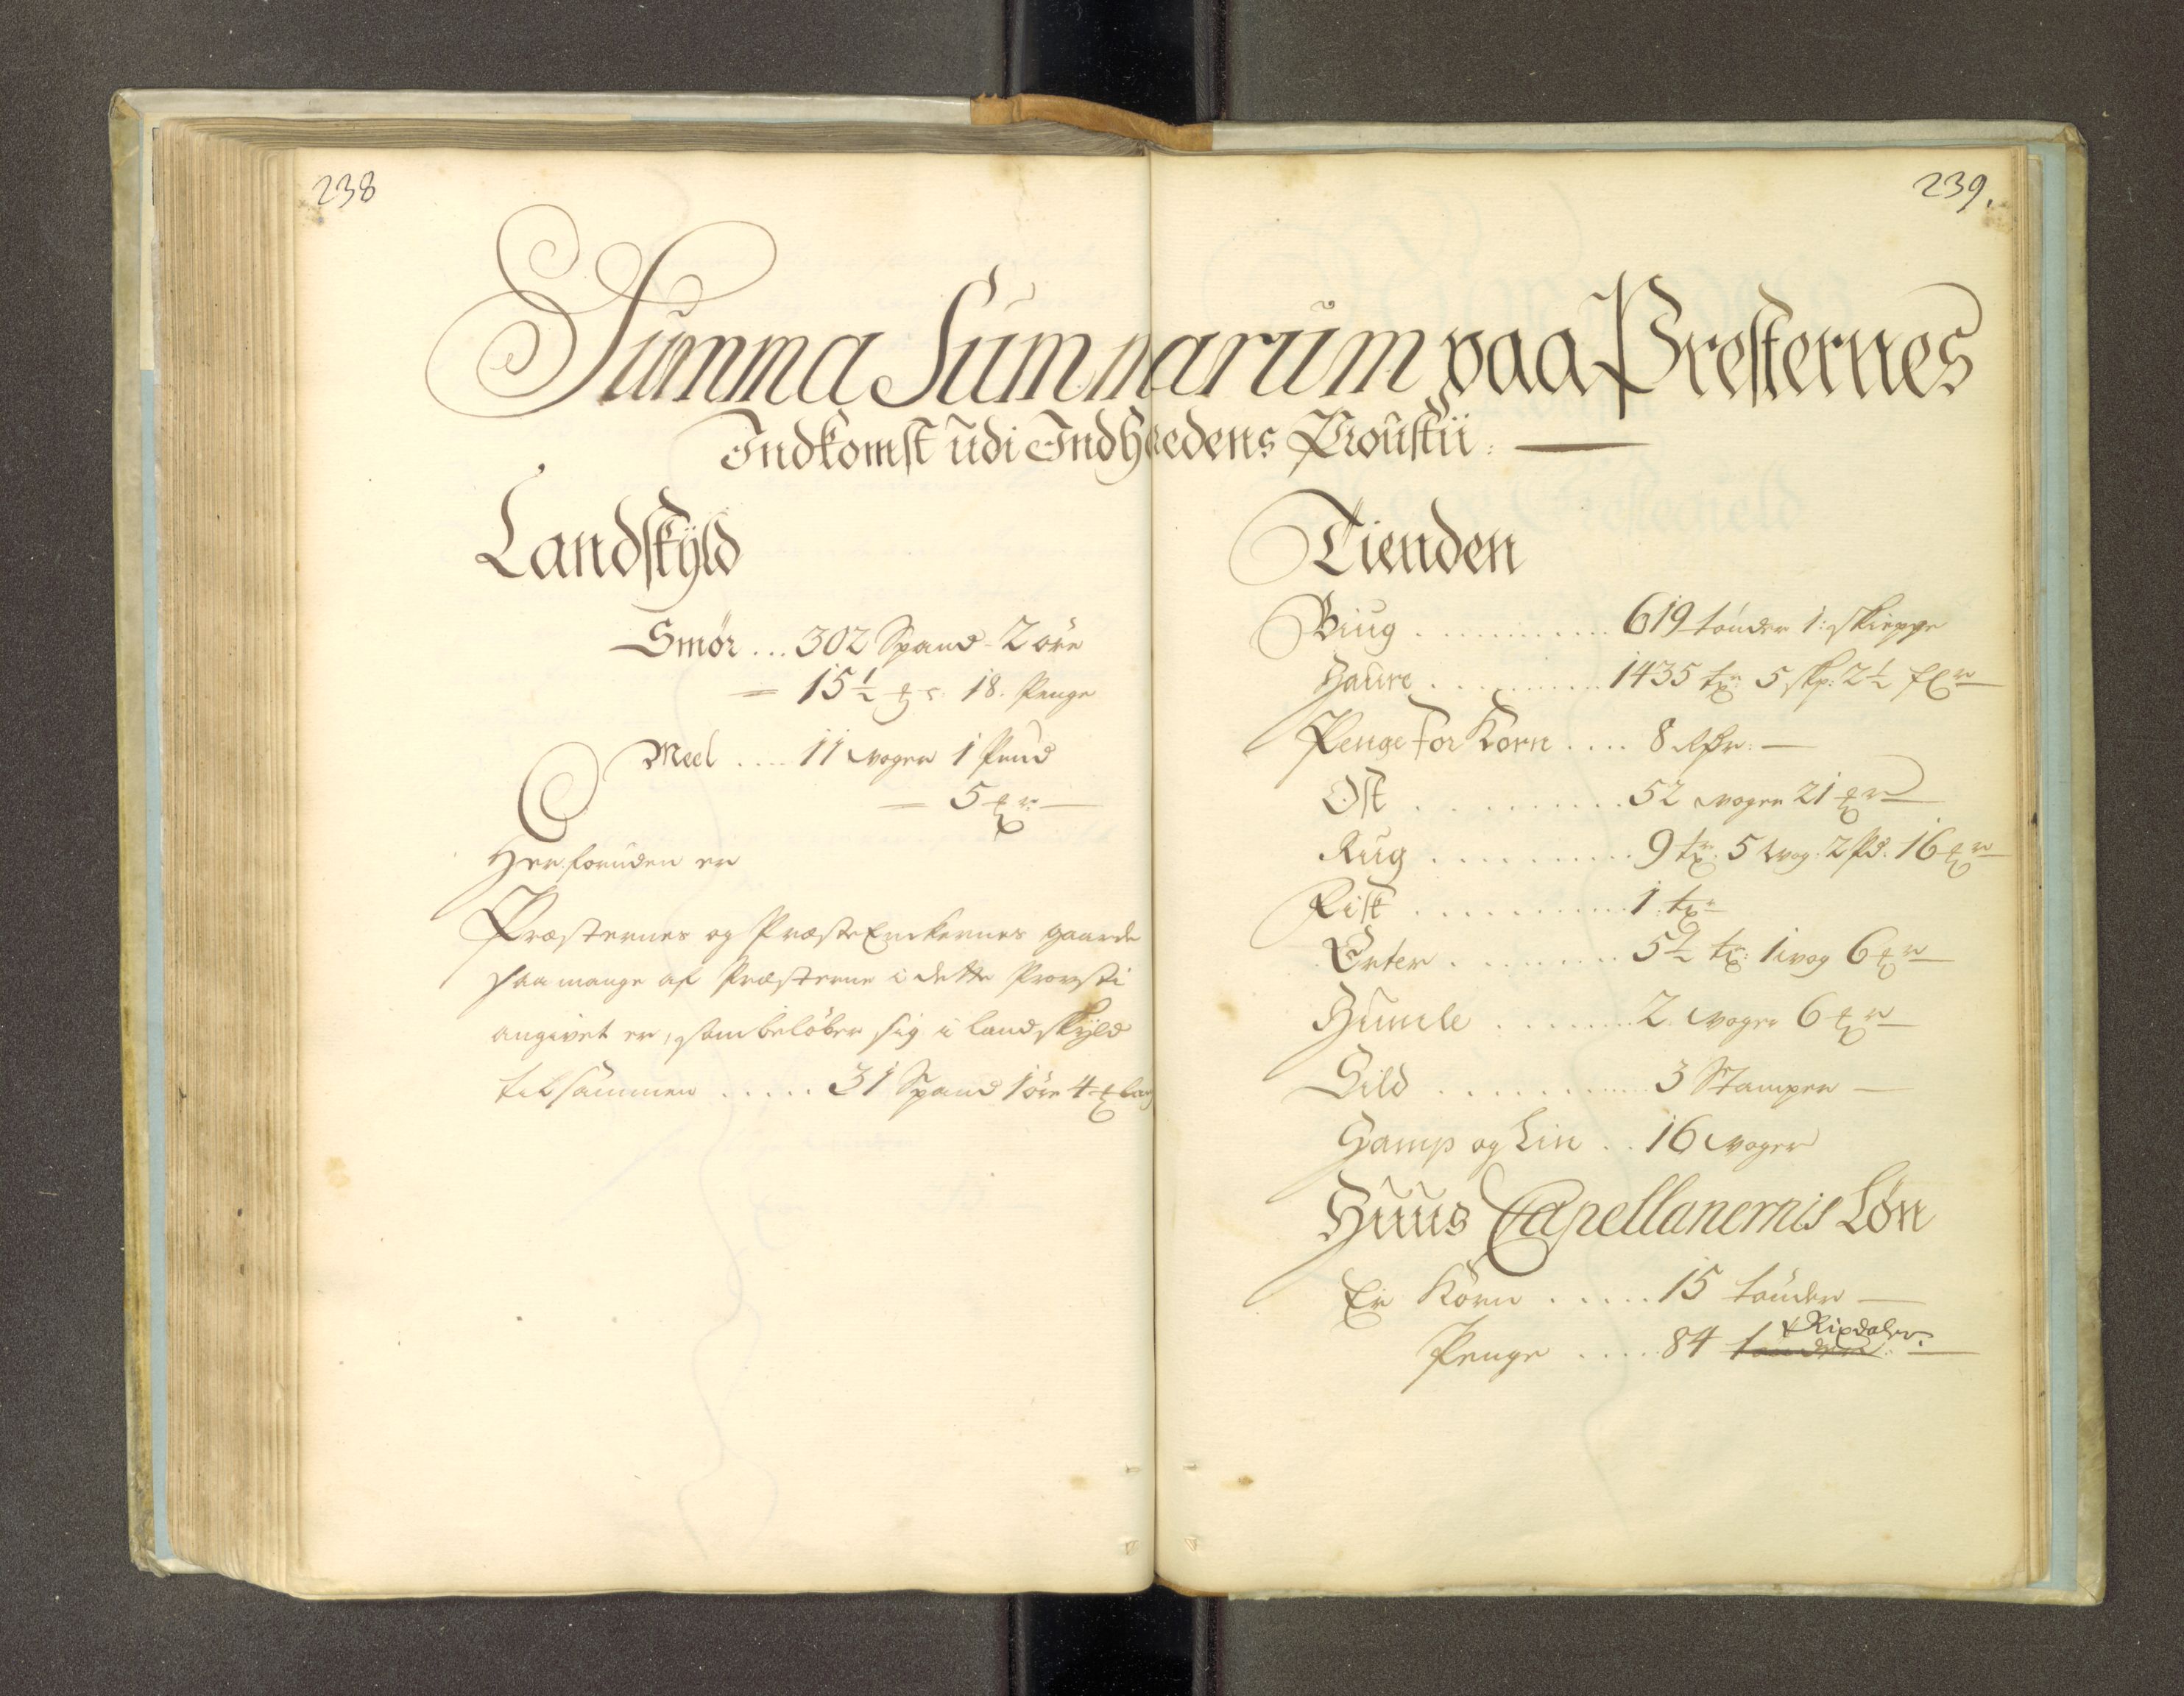 238
239.
Summa Summarum paa Presternes
Indkomst udi Indheredens Proustii:
Landskyld
Smör ... 302 Spand - 2 öre
= 15½ 18. Penge
Meel .... 11 woger 1 Pund
— 5
Her foruden er
Præsternes og Præste Enckernes gaarde
saa mange af Præsterne i dette Provsti
angivet er, som belöber sig i landskyld
tilsammen ..... 31 Spand 1 öre 4
Tienden
Biug ........... 619 tönder 1: skieppe
Haure .......... 1435 tr: 5 skp: 2½
Penge for Korn .... 8 Rdr:
Ost .......... 52 woger 21
Rug .......... 9 tr: 5 wog: 2 Pd. 16
Fisk .......... 1: tr
Erter ......... 5½ tr: 1 wog 6
Humle ........ 2. woger 6
Sild .......... 3 Stamper
Hamp og Lin .. 16 woger
Huus Capellanernis Lön
Er Korn ..... 15 tönder
Rixdaler.
Penge ..... 84 tönder: